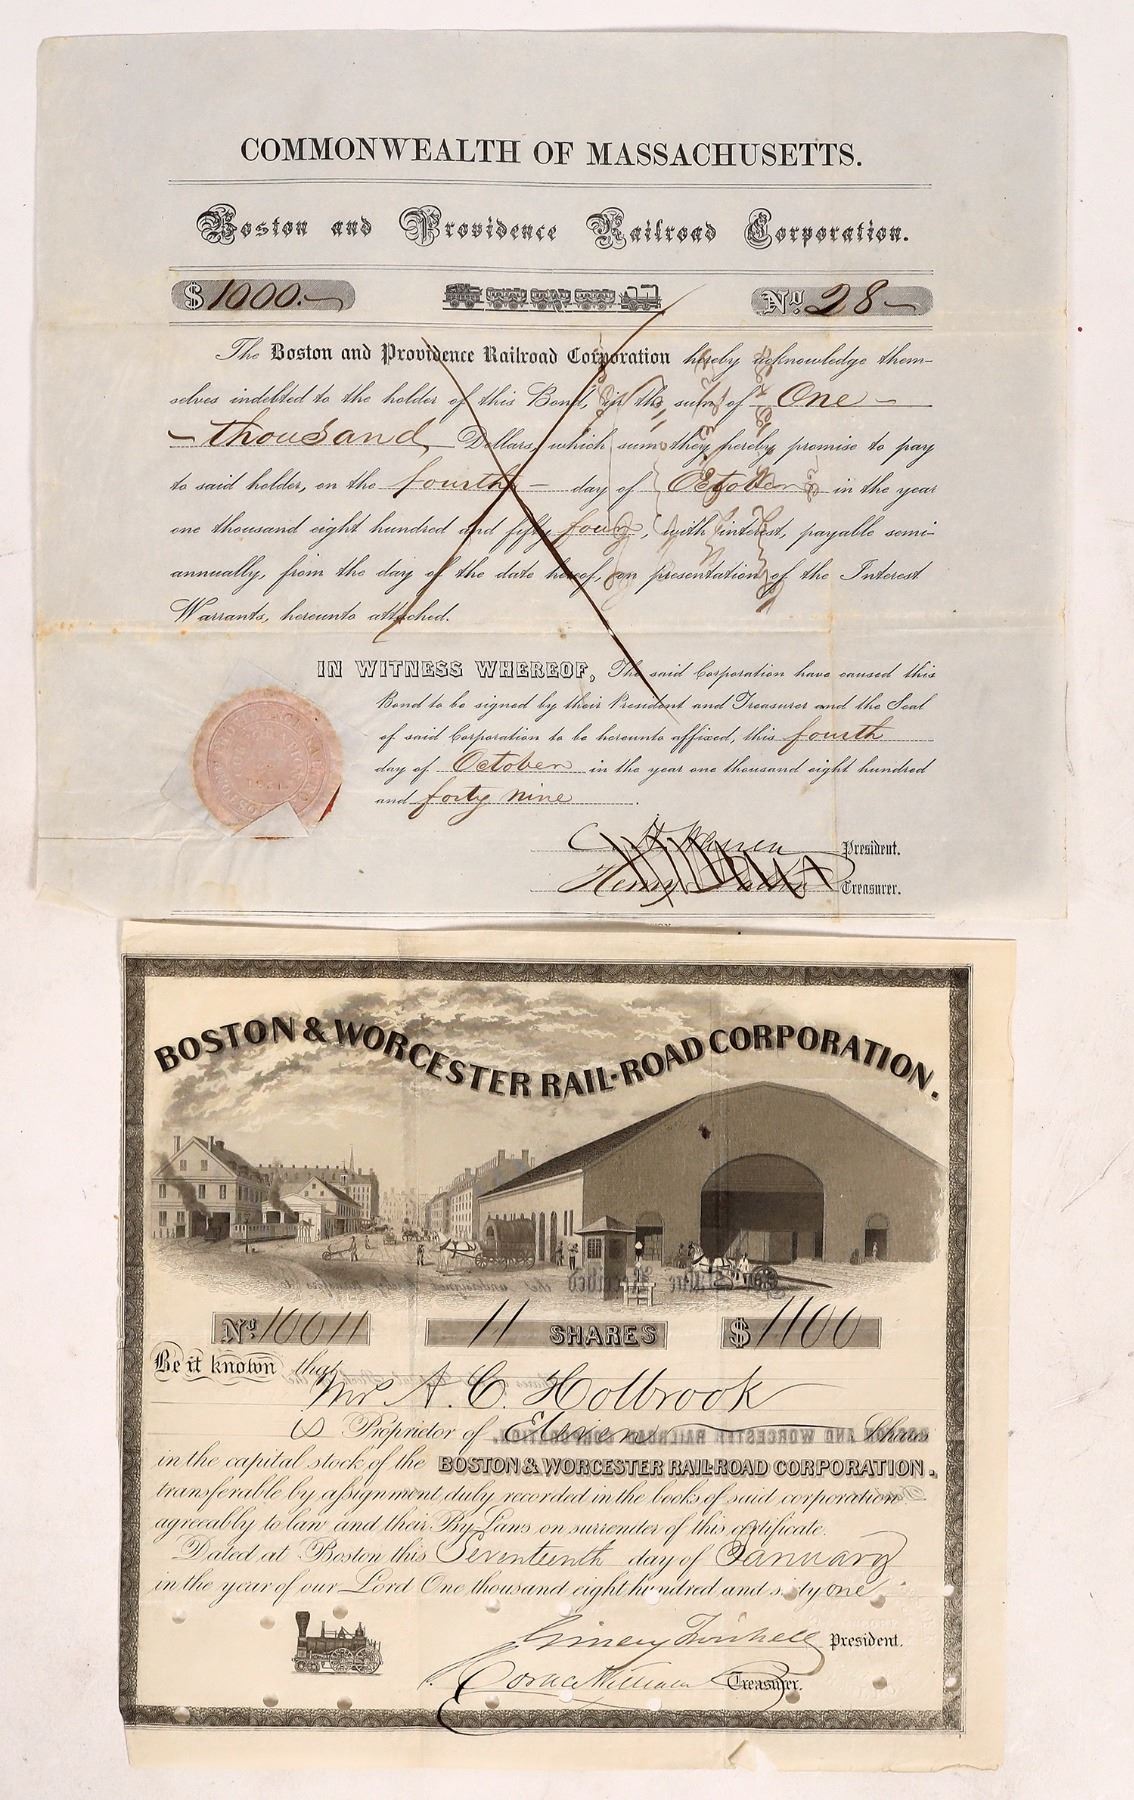 COMMONWEALTH OF MASSACHUSETTS.
Boston and Providence Railroad Corporation.
$ 1000.— No. 28—
The Boston and Providence Railroad Corporation hereby acknowledge them-
selves indebted to the holder of this Bond, in the sum of One —
— thousand Dollars, which sum they hereby promise to pay
to said holder, on the fourth — day of October in the year
one thousand eight hundred and fifty four, with interest, payable semi-
annually, from the day of the date hereof, on presentation of the Interest
Warrants, hereunto attached.
IN WITNESS WHEREOF, The said Corporation have caused this
Bond to be signed by their President and Treasurer and the Seal
of said Corporation to be hereunto affixed, this fourth
day of October in the year one thousand eight hundred
and forty nine.
President.
Henry Treasurer.
BOSTON & WORCESTER RAIL-ROAD CORPORATION.
No. 10011 11 SHARES $ 1100
Be it known that
Mr A. C. Holbrook
is Proprietor of Eleven Shares
in the capital stock of the BOSTON & WORCESTER RAIL-ROAD CORPORATION,
transferable by assignment duly recorded in the books of said corporation
agreeably to law and their By Laws on surrender of this certificate.
Dated at Boston this Seventeenth day of January
in the year of our Lord One thousand eight hundred and sixty one.
Ginery Twichell President.
Treasurer.